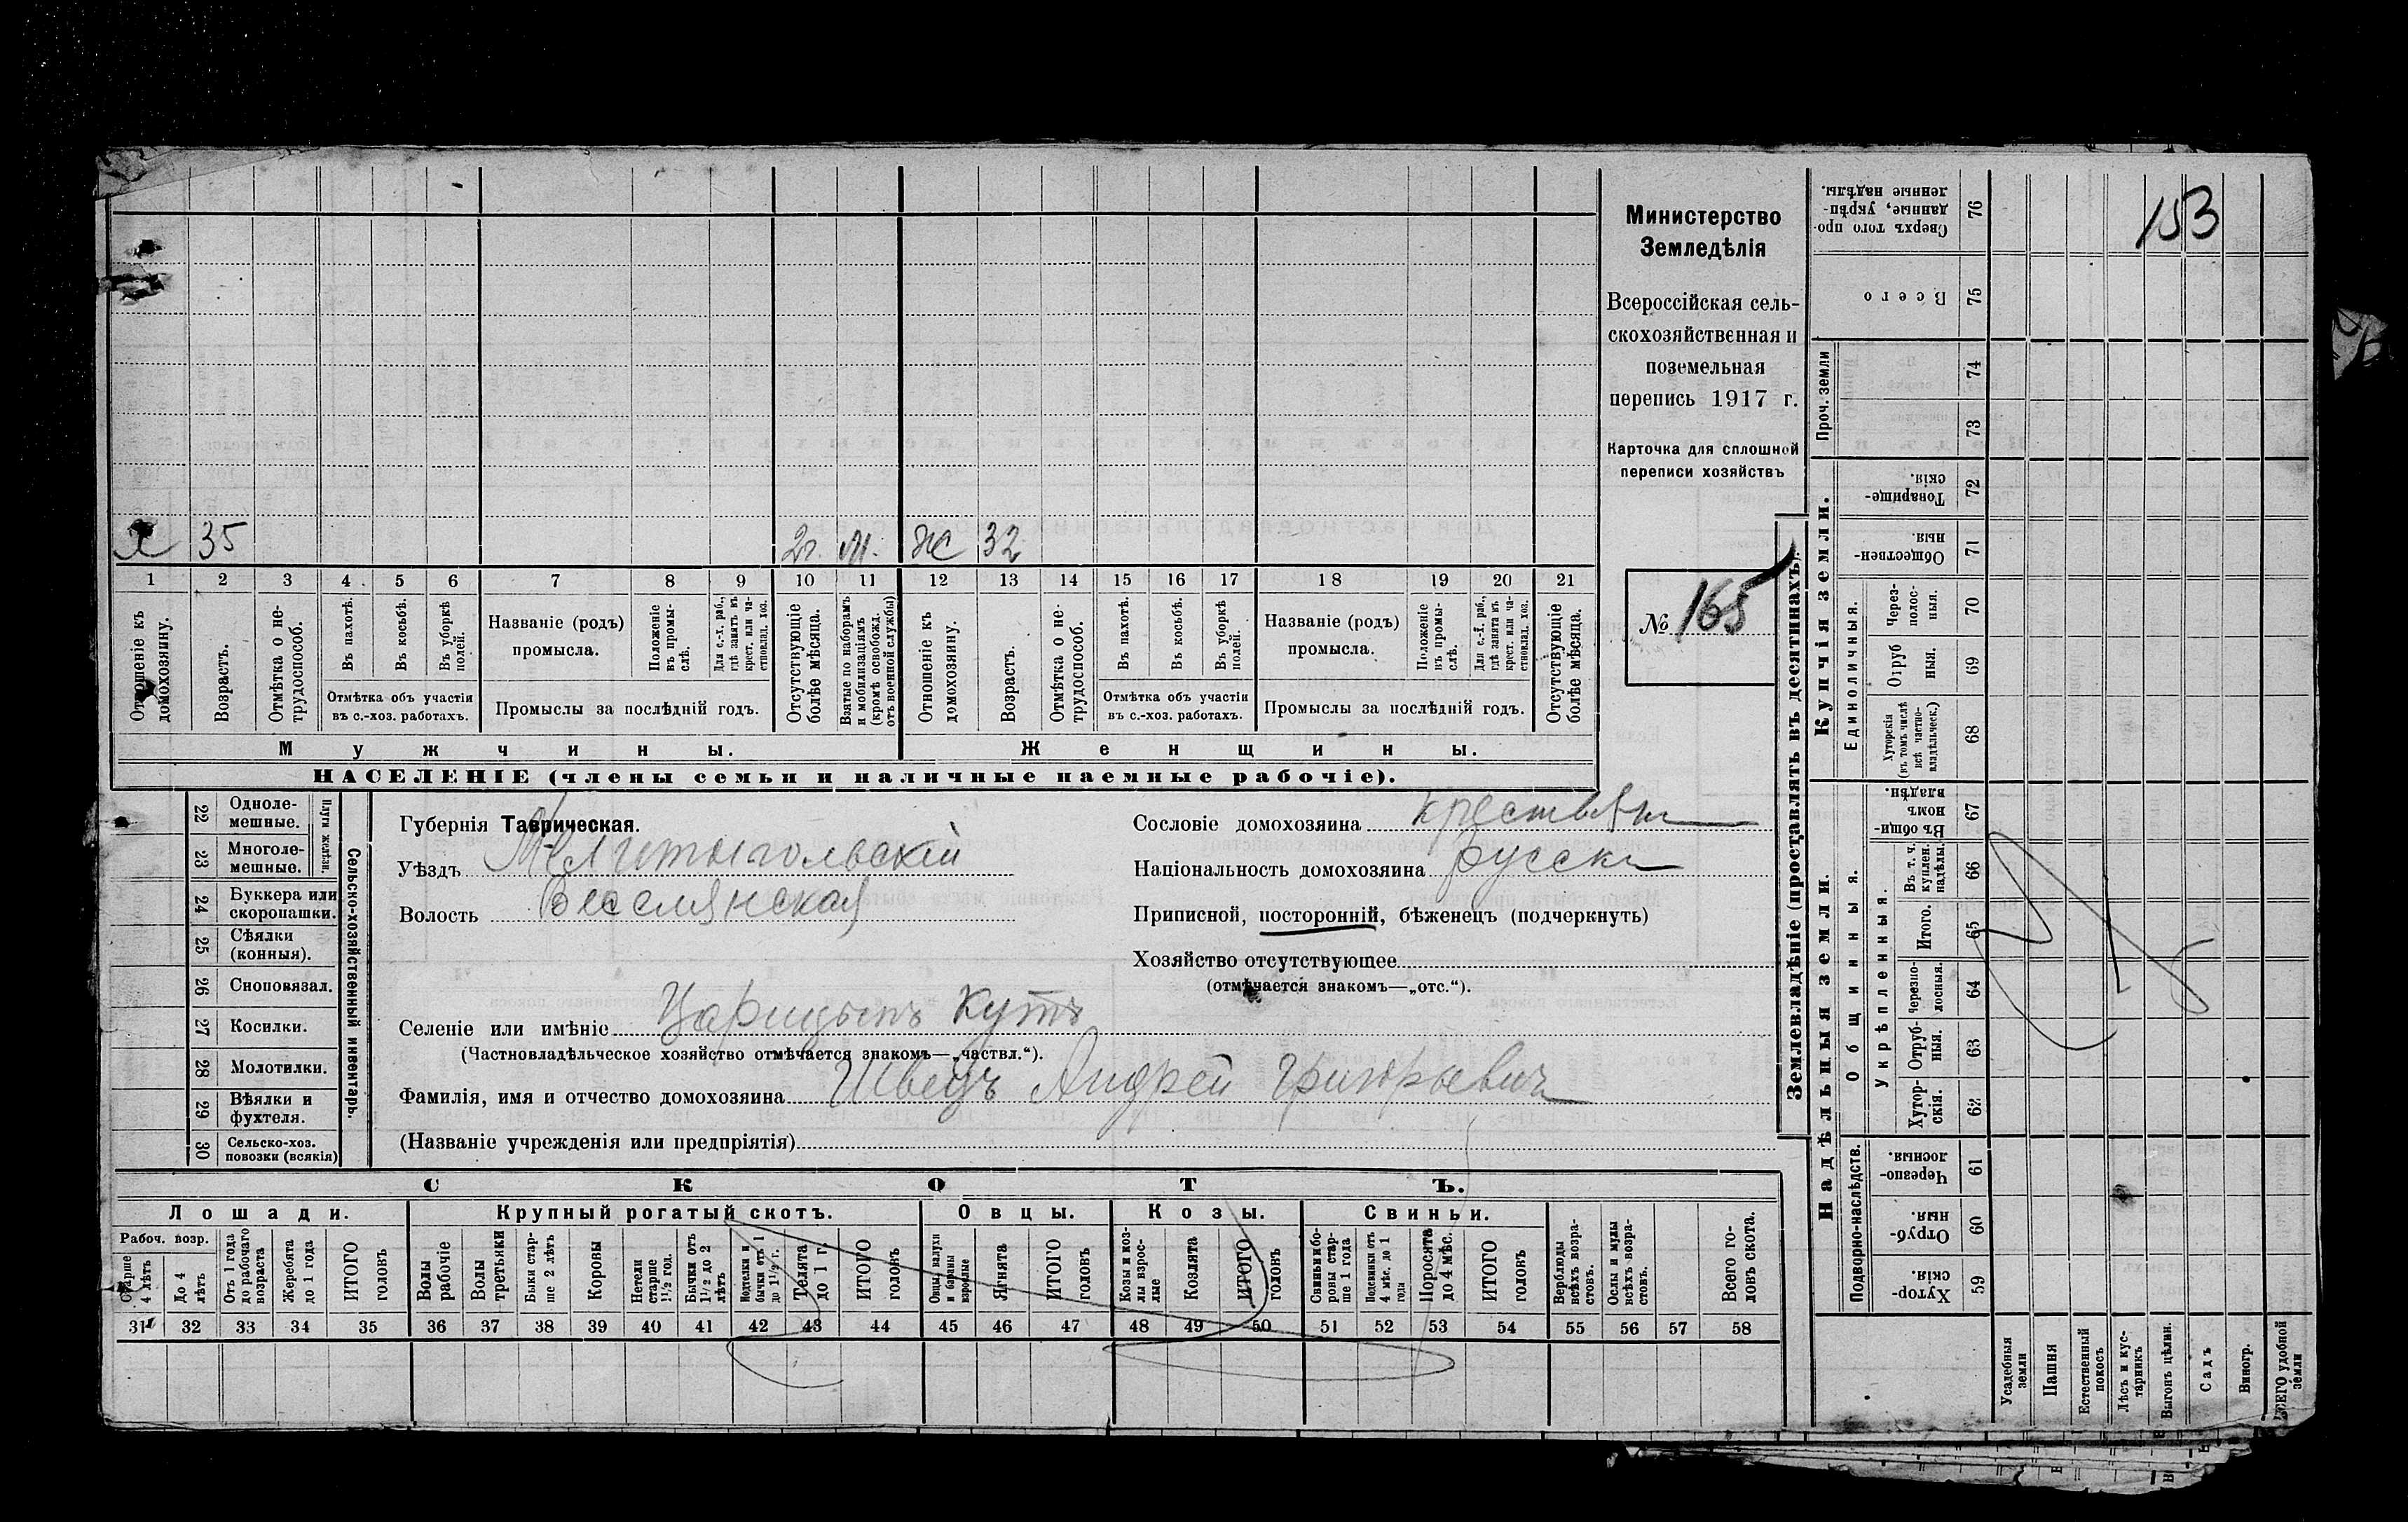 153
Министерство
Земледѣлія
Всероссійская сель-
скохозяйственная и
поземельная
перепись 1917 г.
Карточка для сплошной
переписи хозяйствъ
№ 165
35 2г. М. Ж 32
1 2 3 4 5 6 7 8 9 10 11 12 13 14 15 16 17 18 19 20 21
Отношеніе къ домохозяину.
Возрастъ.
Отмѣтка о не-трудоспособ.
Въ пахотѣ.
Въ косьбѣ.
Въ уборкѣ полей.
Отмѣтка объ участіи
въ с.-хоз. работахъ.
Названіе (родъ)
промысла.
Положеніе въ промы-слѣ.
Для с.-х. раб., гдѣ занятъ въ крест. или ча-стновлад. хоз.
Промыслы за послѣдній годъ.
Отсутствующіе болѣе мѣсяца.
Взятые по наборамъ и мобилизаціямъ (кромѣ освобожд. отъ военной службы)
Отношеніе къ домохозяину.
Возрастъ.
Отмѣтка о не-трудоспособ.
Въ пахотѣ.
Въ косьбѣ.
Въ уборкѣ полей.
Отмѣтка объ участіи
въ с.-хоз. работахъ.
Названіе (родъ)
промысла.
Положеніе въ промы-слѣ.
Для с.-х. раб., гдѣ занята въ крест. или ча-стновлад. хоз.
Промыслы за послѣдній годъ.
Отсутствующіе болѣе мѣсяца.
Мужчины. Женщины.
НАСЕЛЕНІЕ (члены семьи и наличные наемные рабочіе).
22 Одноле-мешные.
23 Многоле-мешные.
Плуги желѣзн.
24 Буккера или скоропашки.
25 Сѣялки (конныя).
26 Сноповязал.
27 Косилки.
28 Молотилки.
29 Вѣялки и фухтеля.
30 Сельско-хоз. повозки (всякія)
Сельско-хозяйственный инвентарь.
Губернія Таврическая.
Уѣздъ Мелитопольскій
Волость Веселянская
Сословіе домохозяина крестьян
Національность домохозяина русск
Приписной, посторонній, бѣженецъ (подчеркнуть)
Хозяйство отсутствующее
(отмѣчается знакомъ—„отс.“).
Селеніе или имѣніе Царицынъ Кутъ
(Частновладѣльческое хозяйство отмѣчается знакомъ—„частвл.“).
Фамилія, имя и отчество домохозяина Швецъ Андрей Григорьевич
(Названіе учрежденія или предпріятія)
СКОТЪ.
Лошади. Крупный рогатый скотъ. Овцы. Козы. Свиньи.
Рабоч. возр.
Старше 4 лѣтъ
До 4 лѣтъ
Отъ 1 года до рабочаго возраста
Жеребята до 1 года
ИТОГО головъ
Волы рабочіе
Волы третьяки
Быки стар-ше 2 лѣтъ
Коровы
Нетели старше 1½ год.
Бычки отъ 1½ до 2 лѣтъ
бычки отъ 1 до 1½ г.
Телята до 1 г.
ИТОГО головъ
Овцы, валухи и бараны взрослые
Ягнята
ИТОГО головъ
Козы и коз-лы взрос-лые
Козлята
ИТОГО головъ
Свиньи и бо-ровы стар-ше 1 года
Подсвинки отъ 4 мѣс. до 1 года
Поросята до 4 мѣс.
ИТОГО головъ
Верблюды всѣхъ возра-стовъ.
Ослы и мулы всѣхъ возра-стовъ.
Всего го-ловъ скота.
31 32 33 34 35 36 37 38 39 40 41 42 43 44 45 46 47 48 49 50 51 52 53 54 55 56 57 58
Землевладѣніе (проставлять въ десятинахъ).
Купчія земли.
Надѣльныя земли.
Сверхъ того про-данные, укрѣп-ленные надѣлы. 76
Всего 75
Проч. земли
74
73
Товарище-скія. 72
Обществен-ныя. 71
Единоличныя.
Через-полос-ныя. 70
Отруб ныя. 69
Хуторскія (въ томъ числѣ всѣ частно-владѣльческ.) 68
Общинныя.
Въ общи-номъ владѣн. 67
Укрѣпленныя.
Въ т. ч. куплен. надѣлы. 66
Итого. 65
Черезпо-лосныя. 64
Отруб-ныя. 63
Хутор-скія. 62
Подворно-наслѣдств.
Черезпо-лосныя. 61
Отруб-ныя. 60
Хутор-скія. 59
Усадебныя земли
Пашня
Естественный покосъ
Лѣсъ и кус-тарникъ
Выгонъ цѣлин.
Садъ
Виногр.
ВСЕГО удобной земли